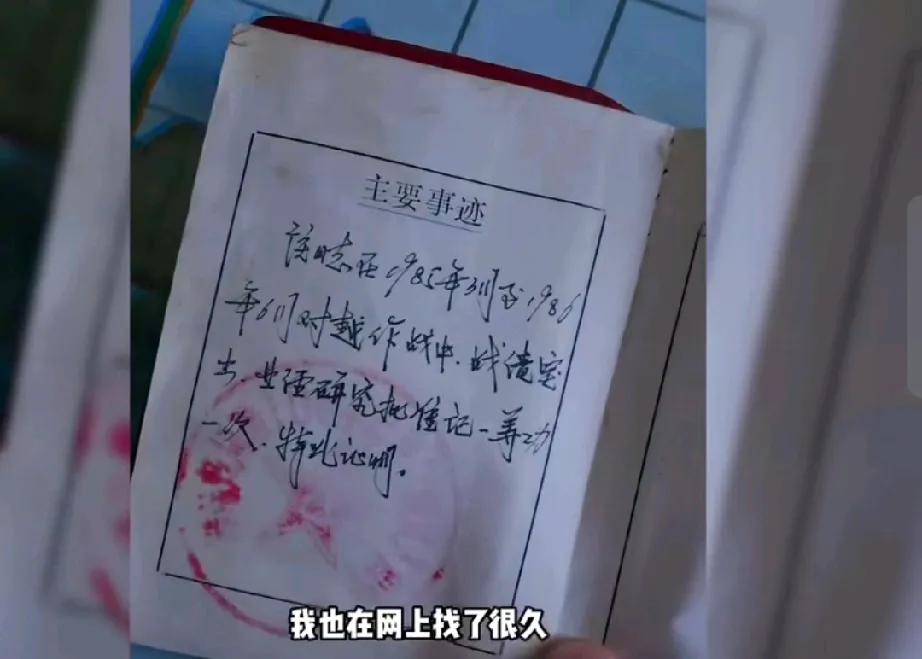 主要事迹
该同志在1985年3月至1986
年6月对越作战中、战绩突
出、业经研究批准记一等功
一次、特此证明。
我也在网上找了很久